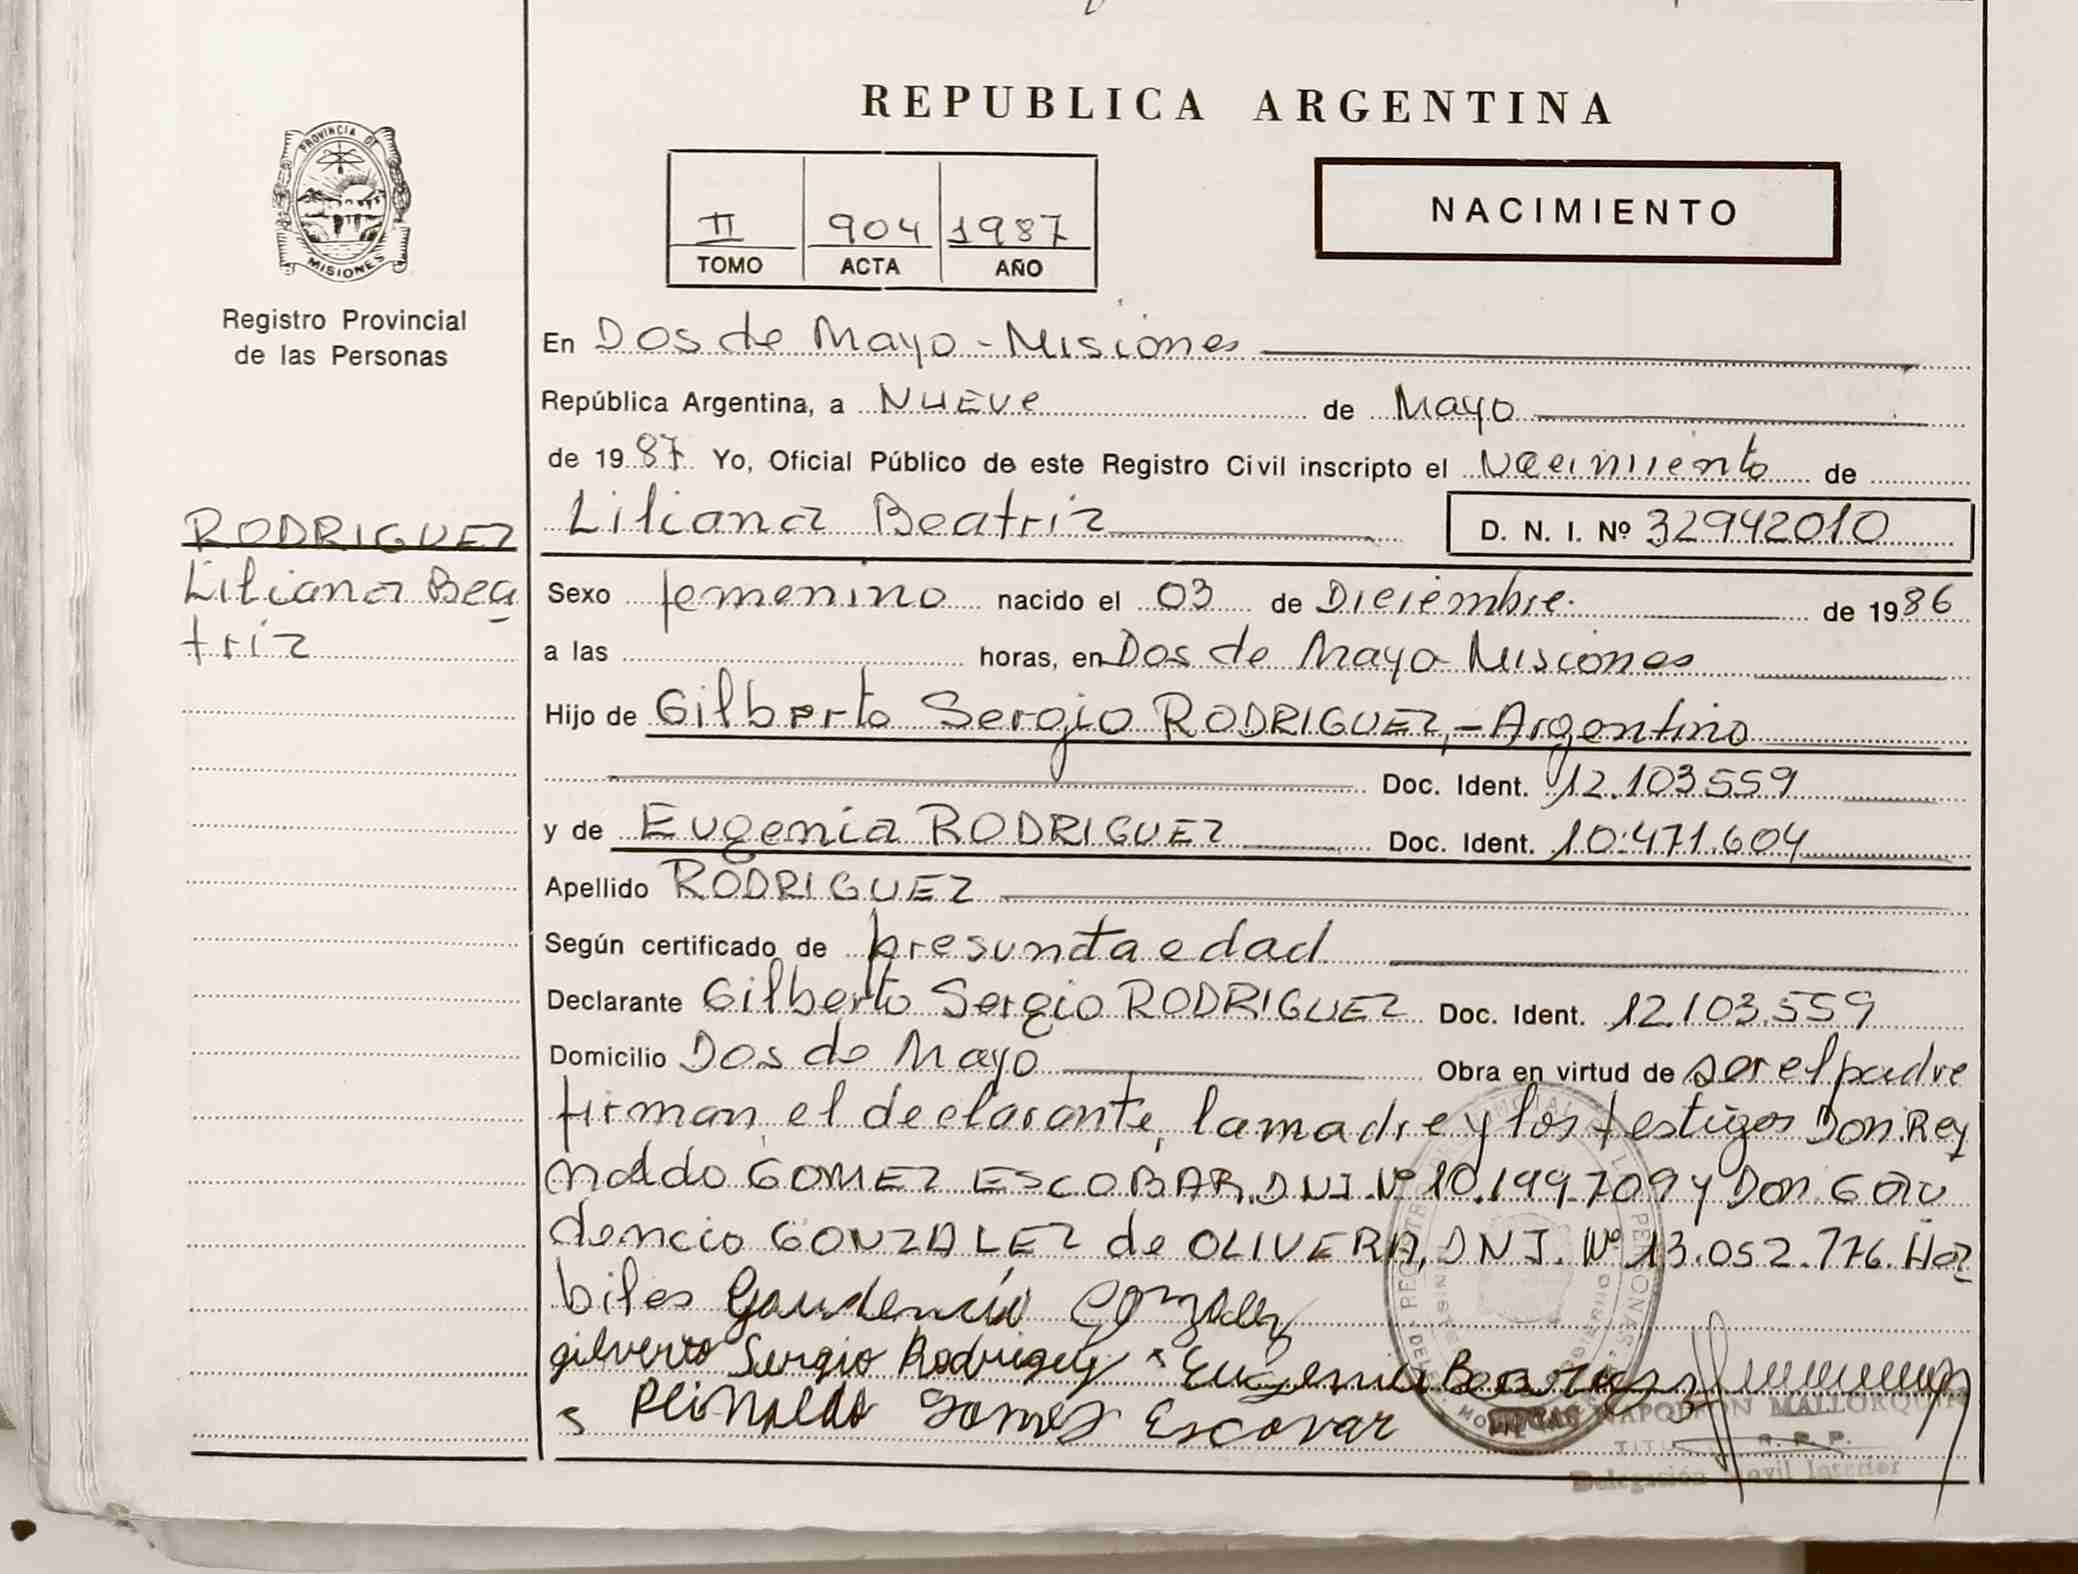 REPUBLICA ARGENTINA
PROVINCIA DE
MISIONES
Registro Provincial
de las Personas
II 904 1987
TOMO ACTA AÑO
NACIMIENTO
En Dos de Mayo - Misiones
República Argentina, a Nueve de Mayo
de 1987 Yo, Oficial Público de este Registro Civil inscripto el Nacimiento de
Liliana Beatriz D. N. I. Nº 32942010
RODRIGUEZ
Liliana Bea
triz
Sexo femenino nacido el 03 de Diciembre. de 1986
a las horas, en Dos de Mayo - Misiones
Hijo de Gilberto Sergio RODRIGUEZ, - Argentino
Doc. Ident. 12.103.559
y de Eugenia RODRIGUEZ Doc. Ident. 10.471.604
Apellido RODRIGUEZ
Según certificado de presunta edad
Declarante Gilberto Sergio RODRIGUEZ Doc. Ident. 12.103.559
Domicilio Dos de Mayo Obra en virtud de ser el padre
firman, el declarante, la madre y los testigos Don Rey
naldo GOMEZ ESCOBAR, DNI. Nº 10.199.709 y Don Gau
dencio GONZALEZ de OLIVERA, DNI. Nº 13.052.776. Ha
biles Gaudencio Gonzalez
gilverto Sergio Rodriguez Eugenia
Reinaldo Gomez Escovar
NAPOLEON MALLORQUIN
R. P. P.
Delegación Movil Interior